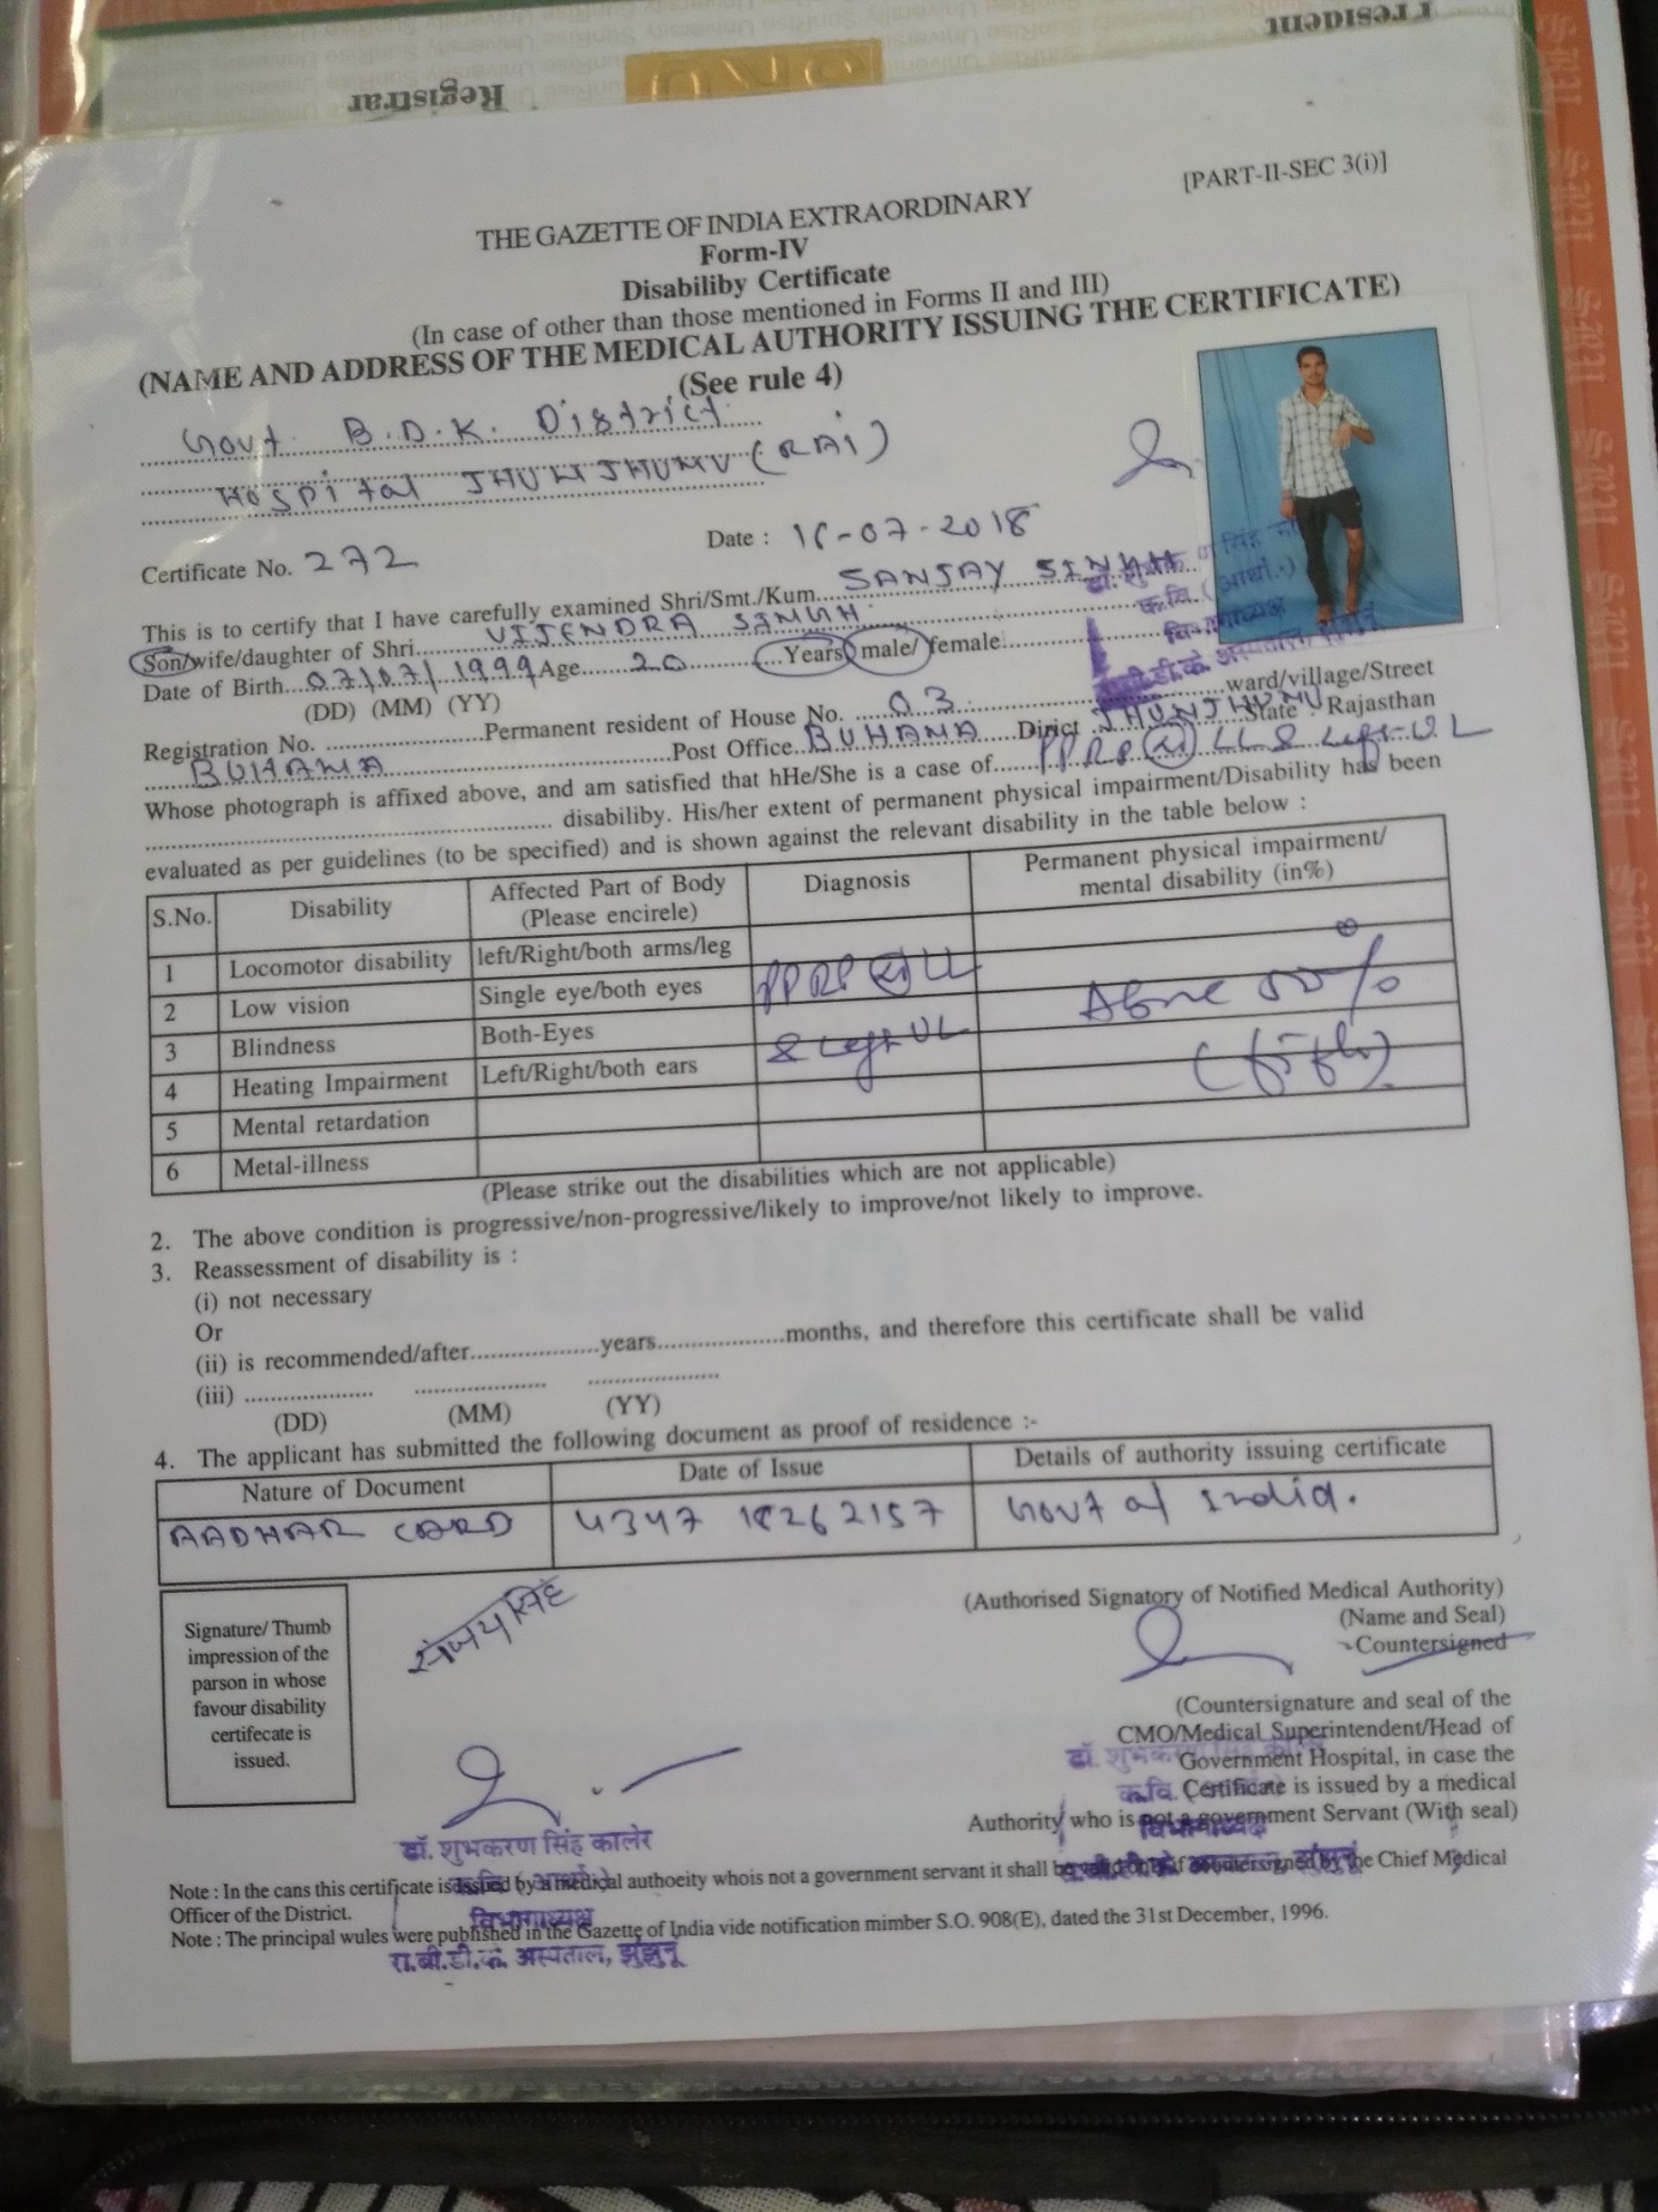 President
Registrar
[PART-II-SEC 3(i)]
THE GAZETTE OF INDIA EXTRAORDINARY
Form-IV
Disabiliby Certificate
(In case of other than those mentioned in Forms II and III)
(NAME AND ADDRESS OF THE MEDICAL AUTHORITY ISSUING THE CERTIFICATE)
(See rule 4)
Govt. B.D.K. District
Hospital JHUNJHUNU (RAJ)
Certificate No. 272 Date : 16-07-2018
This is to certify that I have carefully examined Shri/Smt./Kum. SANJAY SINGH
Son/wife/daughter of Shri VIJENDRA SINGH
Date of Birth 07/07/1999 Age 20 Years male/ female
(DD) (MM) (YY)
Registration No. Permanent resident of House No. 03 ward/village/Street
BUHANA Post Office BUHANA Dirict JHUNJHUNU State : Rajasthan
Whose photograph is affixed above, and am satisfied that hHe/She is a case of PPRP LL & Left UL
disabiliby. His/her extent of permanent physical impairment/Disability has been
evaluated as per guidelines (to be specified) and is shown against the relevant disability in the table below :
S.No. Disability Affected Part of Body (Please encirele) Diagnosis Permanent physical impairment/ mental disability (in%)
1 Locomotor disability left/Right/both arms/leg
2 Low vision Single eye/both eyes PPRP LL
3 Blindness Both-Eyes & Left UL
4 Heating Impairment Left/Right/both ears
5 Mental retardation
6 Metal-illness
(Please strike out the disabilities which are not applicable)
2. The above condition is progressive/non-progressive/likely to improve/not likely to improve.
3. Reassessment of disability is :
(i) not necessary
Or
(ii) is recommended/after....................years....................months, and therefore this certificate shall be valid
(iii) .................... .................... ....................
(DD) (MM) (YY)
4. The applicant has submitted the following document as proof of residence :-
Nature of Document Date of Issue Details of authority issuing certificate
AADHAR CARD 4347 18262157 Govt of India.
Signature/ Thumb
impression of the
parson in whose
favour disability
certifecate is
issued.
संजय सिंह
(Authorised Signatory of Notified Medical Authority)
(Name and Seal)
Countersigned
(Countersignature and seal of the
CMO/Medical Superintendent/Head of
Government Hospital, in case the
Certificate is issued by a medical
Authority who is not a government Servant (With seal)
डॉ. शुभकरण सिंह कालेर
विभागाध्यक्ष
रा.बी.डी.के. अस्पताल, झुंझुनूं
Note : In the cans this certificate is issued by a medical authoeity whois not a government servant it shall be valid only if countersigned by the Chief Medical
Officer of the District.
Note : The principal wules were published in the Gazette of India vide notification mimber S.O. 908(E), dated the 31st December, 1996.